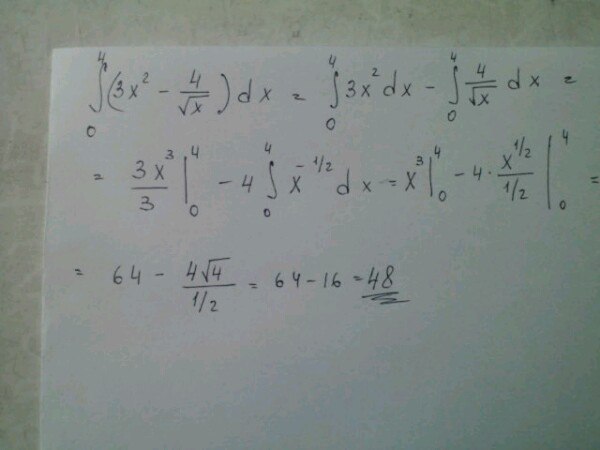 ∫₀⁴ (3x² - 4/√x) dx = ∫₀⁴ 3x² dx - ∫₀⁴ 4/√x dx =
= 3x³/3 |₀⁴ - 4 ∫₀⁴ x^(-1/2) dx = x³ |₀⁴ - 4 · x^(1/2)/(1/2) |₀⁴ =
= 64 - 4√4/(1/2) = 64 - 16 = 48